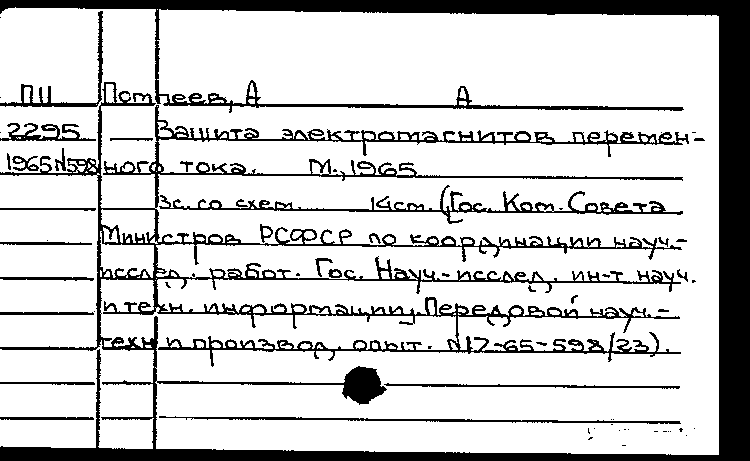 ПII Потпеев, А А
2295 Защита электромагнитов перемен-
1965 N598 ного тока. М., 1965
3с. со схем. 14см. (Гос. Ком. Совета
Министров РСФСР по координации науч.-
исслед. работ. Гос. Науч.-исслед. ин-т науч.
и техн. информации. Передовой науч.-
техн и производ. опыт. N17-65-598/23).